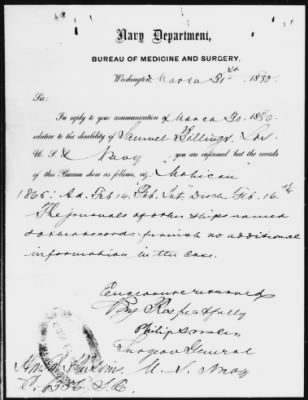 Navy Department,
BUREAU OF MEDICINE AND SURGERY,
Washington March 31st 1880.
Sir:
In reply to your communication of March 30, 1880
relative to the disability of Samuel Billings,
U. S. Navy you are informed that the records
of this Bureau show as follows, viz "Mohican"
1865: Ad. Feb 14. "Feb. Int" Disch. Feb. 16th
The journals of other ships named
& other records furnish no additional
information in the case.
Enclosure returned
Very Respectfully
Philip S. Wales
Surgeon General
U. S. Navy